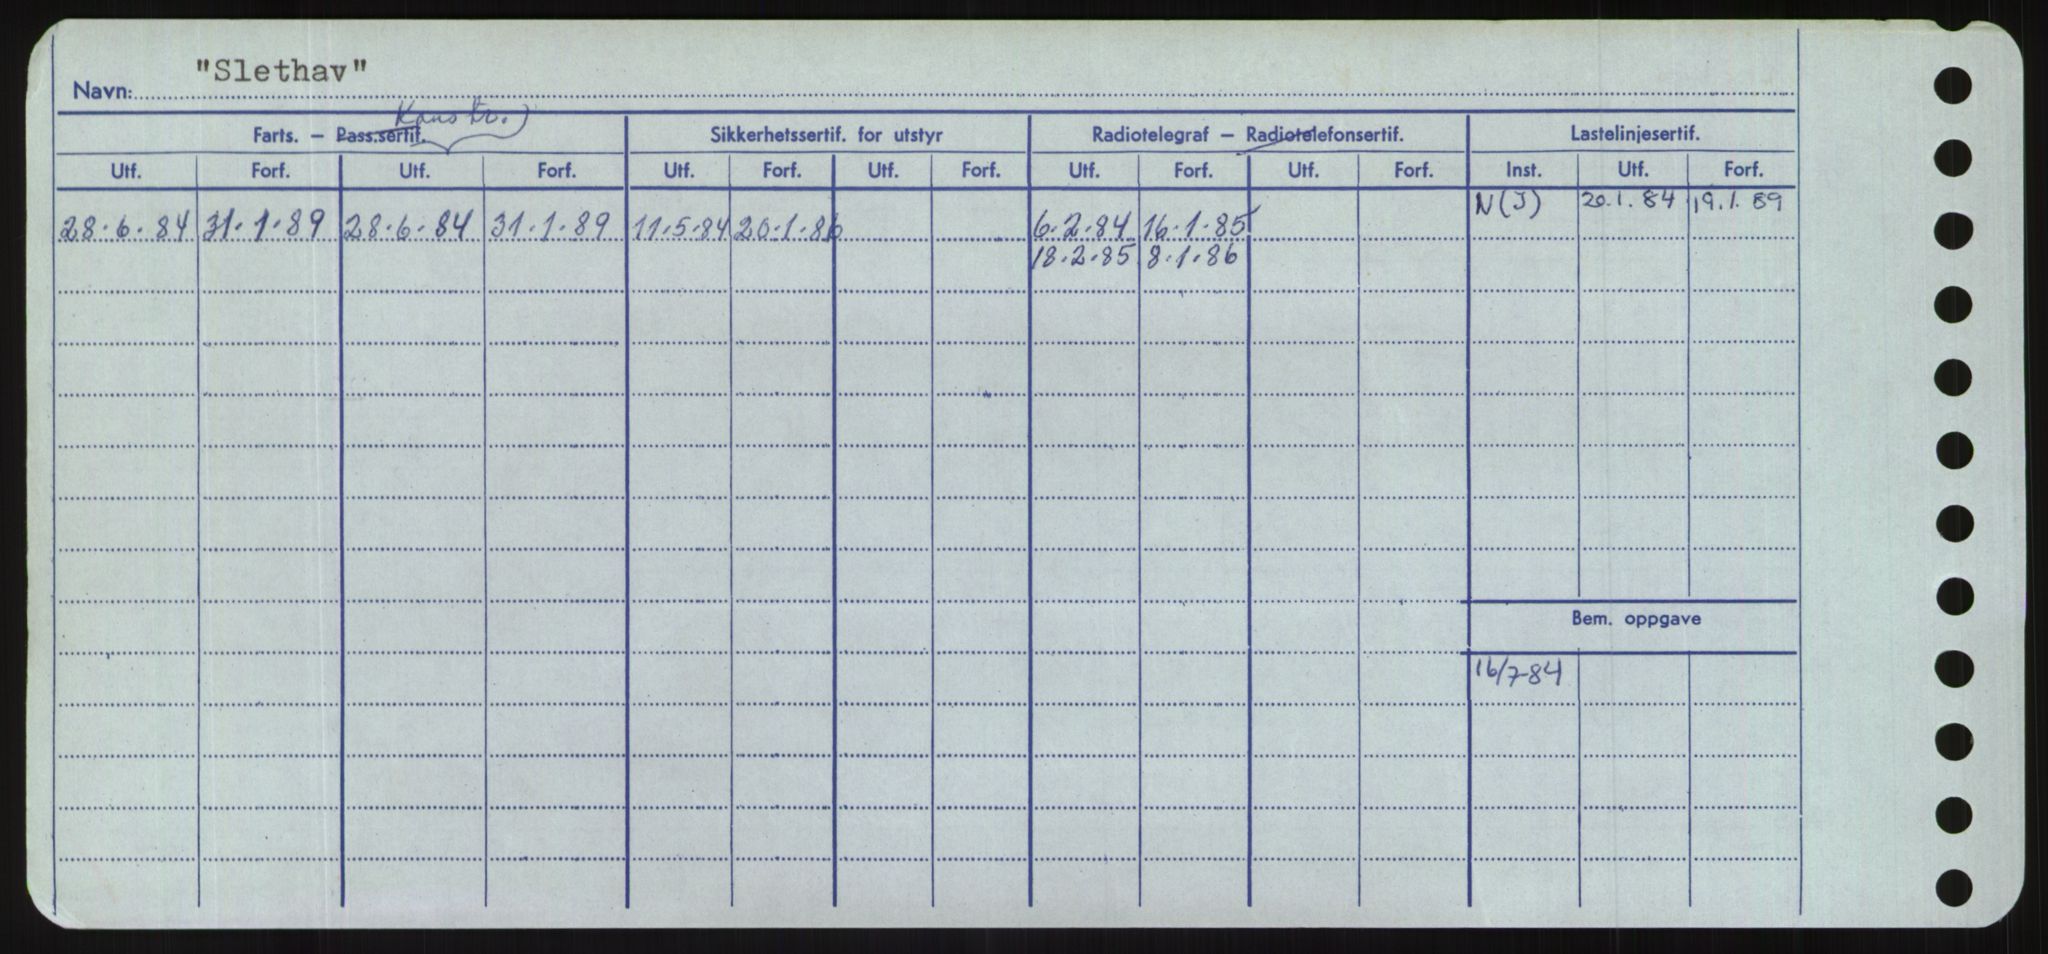 Navn: "Slethav"
Konstr.
Farts. — Pass.sertif. Sikkerhetssertif. for utstyr Radiotelegraf — Radiotelefonsertif. Lastelinjesertif.
Utf. Forf. Utf. Forf. Utf. Forf. Utf. Forf. Utf. Forf. Utf. Forf. Inst. Utf. Forf.
N(J) 20.1.84 19.1.89
28.6.84 31.1.89 28.6.84 31.1.89 11.5.84 20.1.86 6.2.84 16.1.85
18.2.85 8.1.86
Bem. oppgave
16/7-84